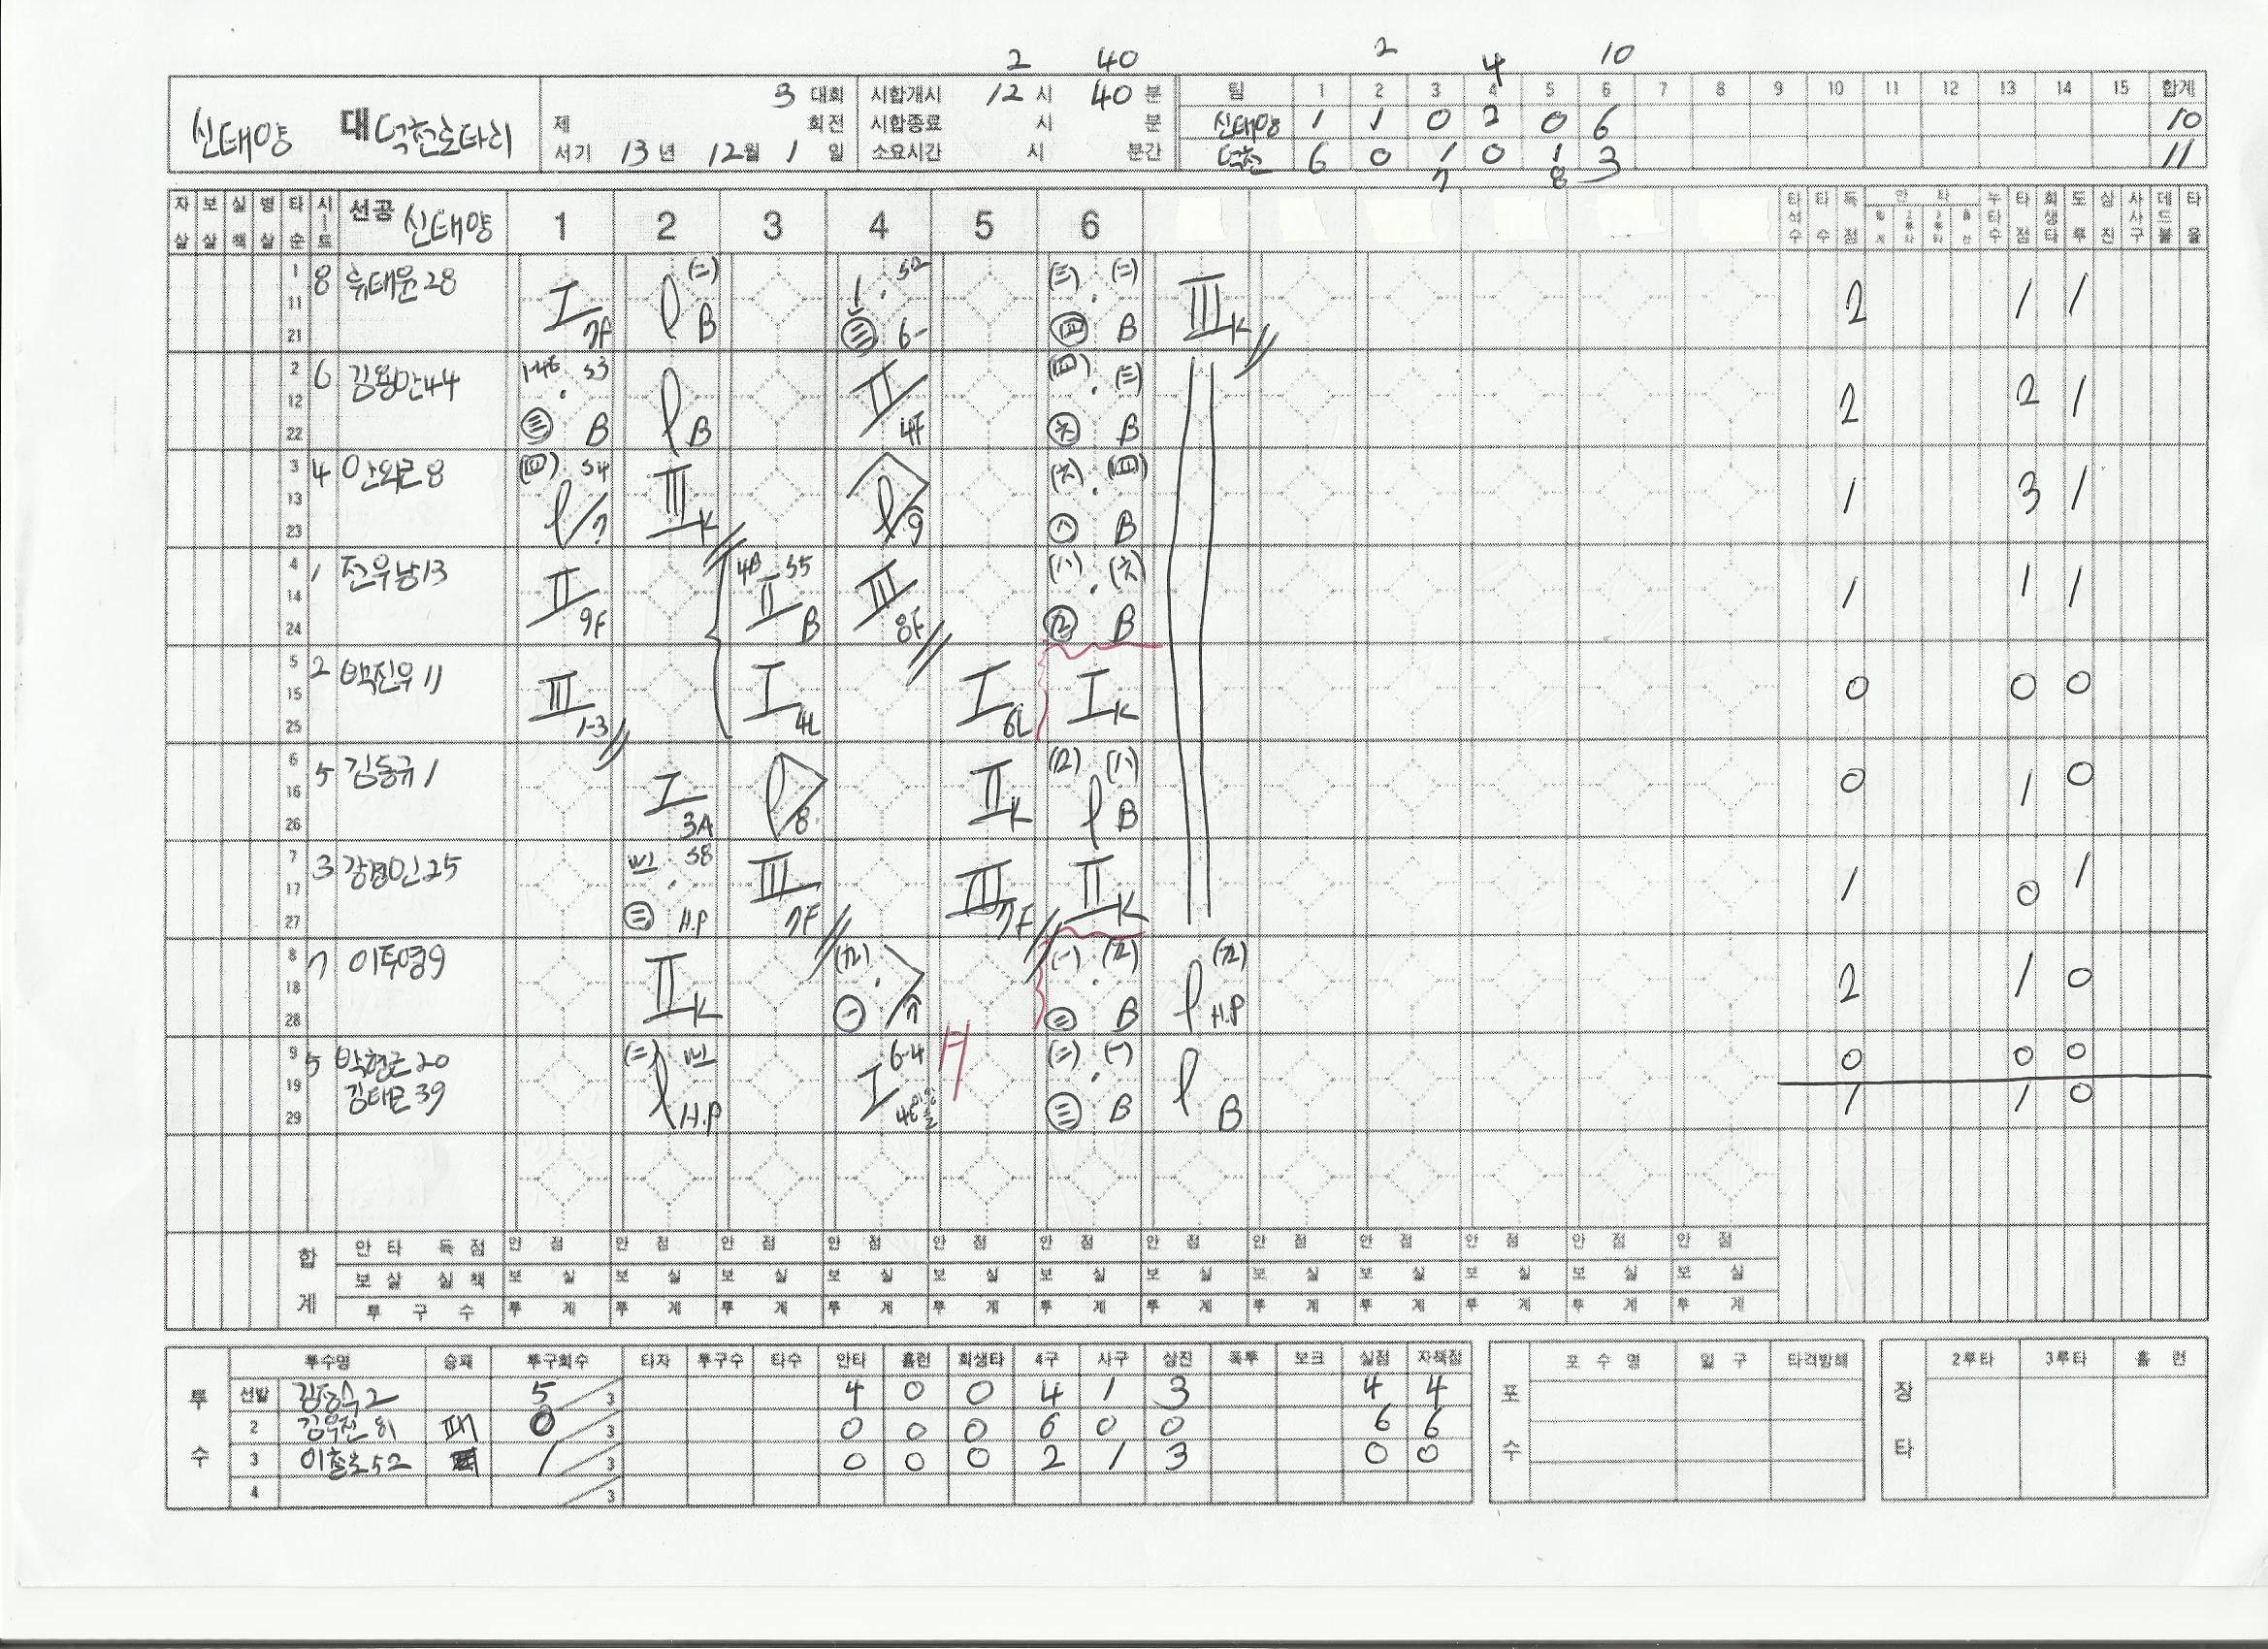 2 40
2 4 10
신태양 대 덕천로타리
3 대회
제 회전
서기 13 년 12 월 1 일
시합개시 12 시 40 분
시합종료 시 분
소요시간 시 분간
팀 1 2 3 4 5 6 7 8 9 10 11 12 13 14 15 합계
신태양 1 1 0 2 0 6 10
덕천 6 0 1 0 1 3 11
7 8
자살 보살 실책 병살 타순 시트 선공 신태양 1 2 3 4 5 6 타석수 타수 득점 안타 누타수 타점 희생타 도루 삼진 사사구 데드볼 타율
1 11 21 8 류태윤 28 I 7F l (二) B S2 三 6- (三) (二) 四 B III K 2 1 1
2 12 22 6 44 S3 三 B l B II 4F (四) (三) 六 B 2 2 1
3 13 23 4 8 (四) S4 l/7 III K l 9 (六) (四) 八 B 1 3 1
4 14 24 1 13 II 9F 4B S5 II B III 8F (八) (六) 九 B 1 1 1
5 15 25 2 박진우 11 III 1-3 I 4L I 6L I K 0 0 0
6 16 26 5 김동규 1 I 3A l 8 II K (九) (八) l B 0 1 0
7 17 27 3 25 S8 三 H.P III 7F III 7F II K 1 0 1
8 18 28 7 9 II K (九) 一 7 (一) (九) 三 B l (九) H.P 2 1 0
9 19 29 5 박현근 20 (二) l H.P 6-4 I H (二) (一) 三 B l B 0 0 0
39 1 1 0
합계 안타 득점 안 점 안 점 안 점 안 점 안 점 안 점 안 점 안 점 안 점 안 점 안 점 안 점
보살 실책 보 실 보 실 보 실 보 실 보 실 보 실 보 실 보 실 보 실 보 실 보 실 보 실
투구수 투 계 투 계 투 계 투 계 투 계 투 계 투 계 투 계 투 계 투 계 투 계 투 계
투수 투수명 승패 투구회수 타자 투구수 타수 안타 홈런 희생타 4구 사구 삼진 폭투 보크 실점 자책점
선발 2 5 /3 4 0 0 4 1 3 4 4
2 김우진 81 패 0 /3 0 0 0 6 0 0 6 6
3 52 1 /3 0 0 0 2 1 3 0 0
4 /3
포수 포수명 일구 타격방해
장타 2루타 3루타 홈런